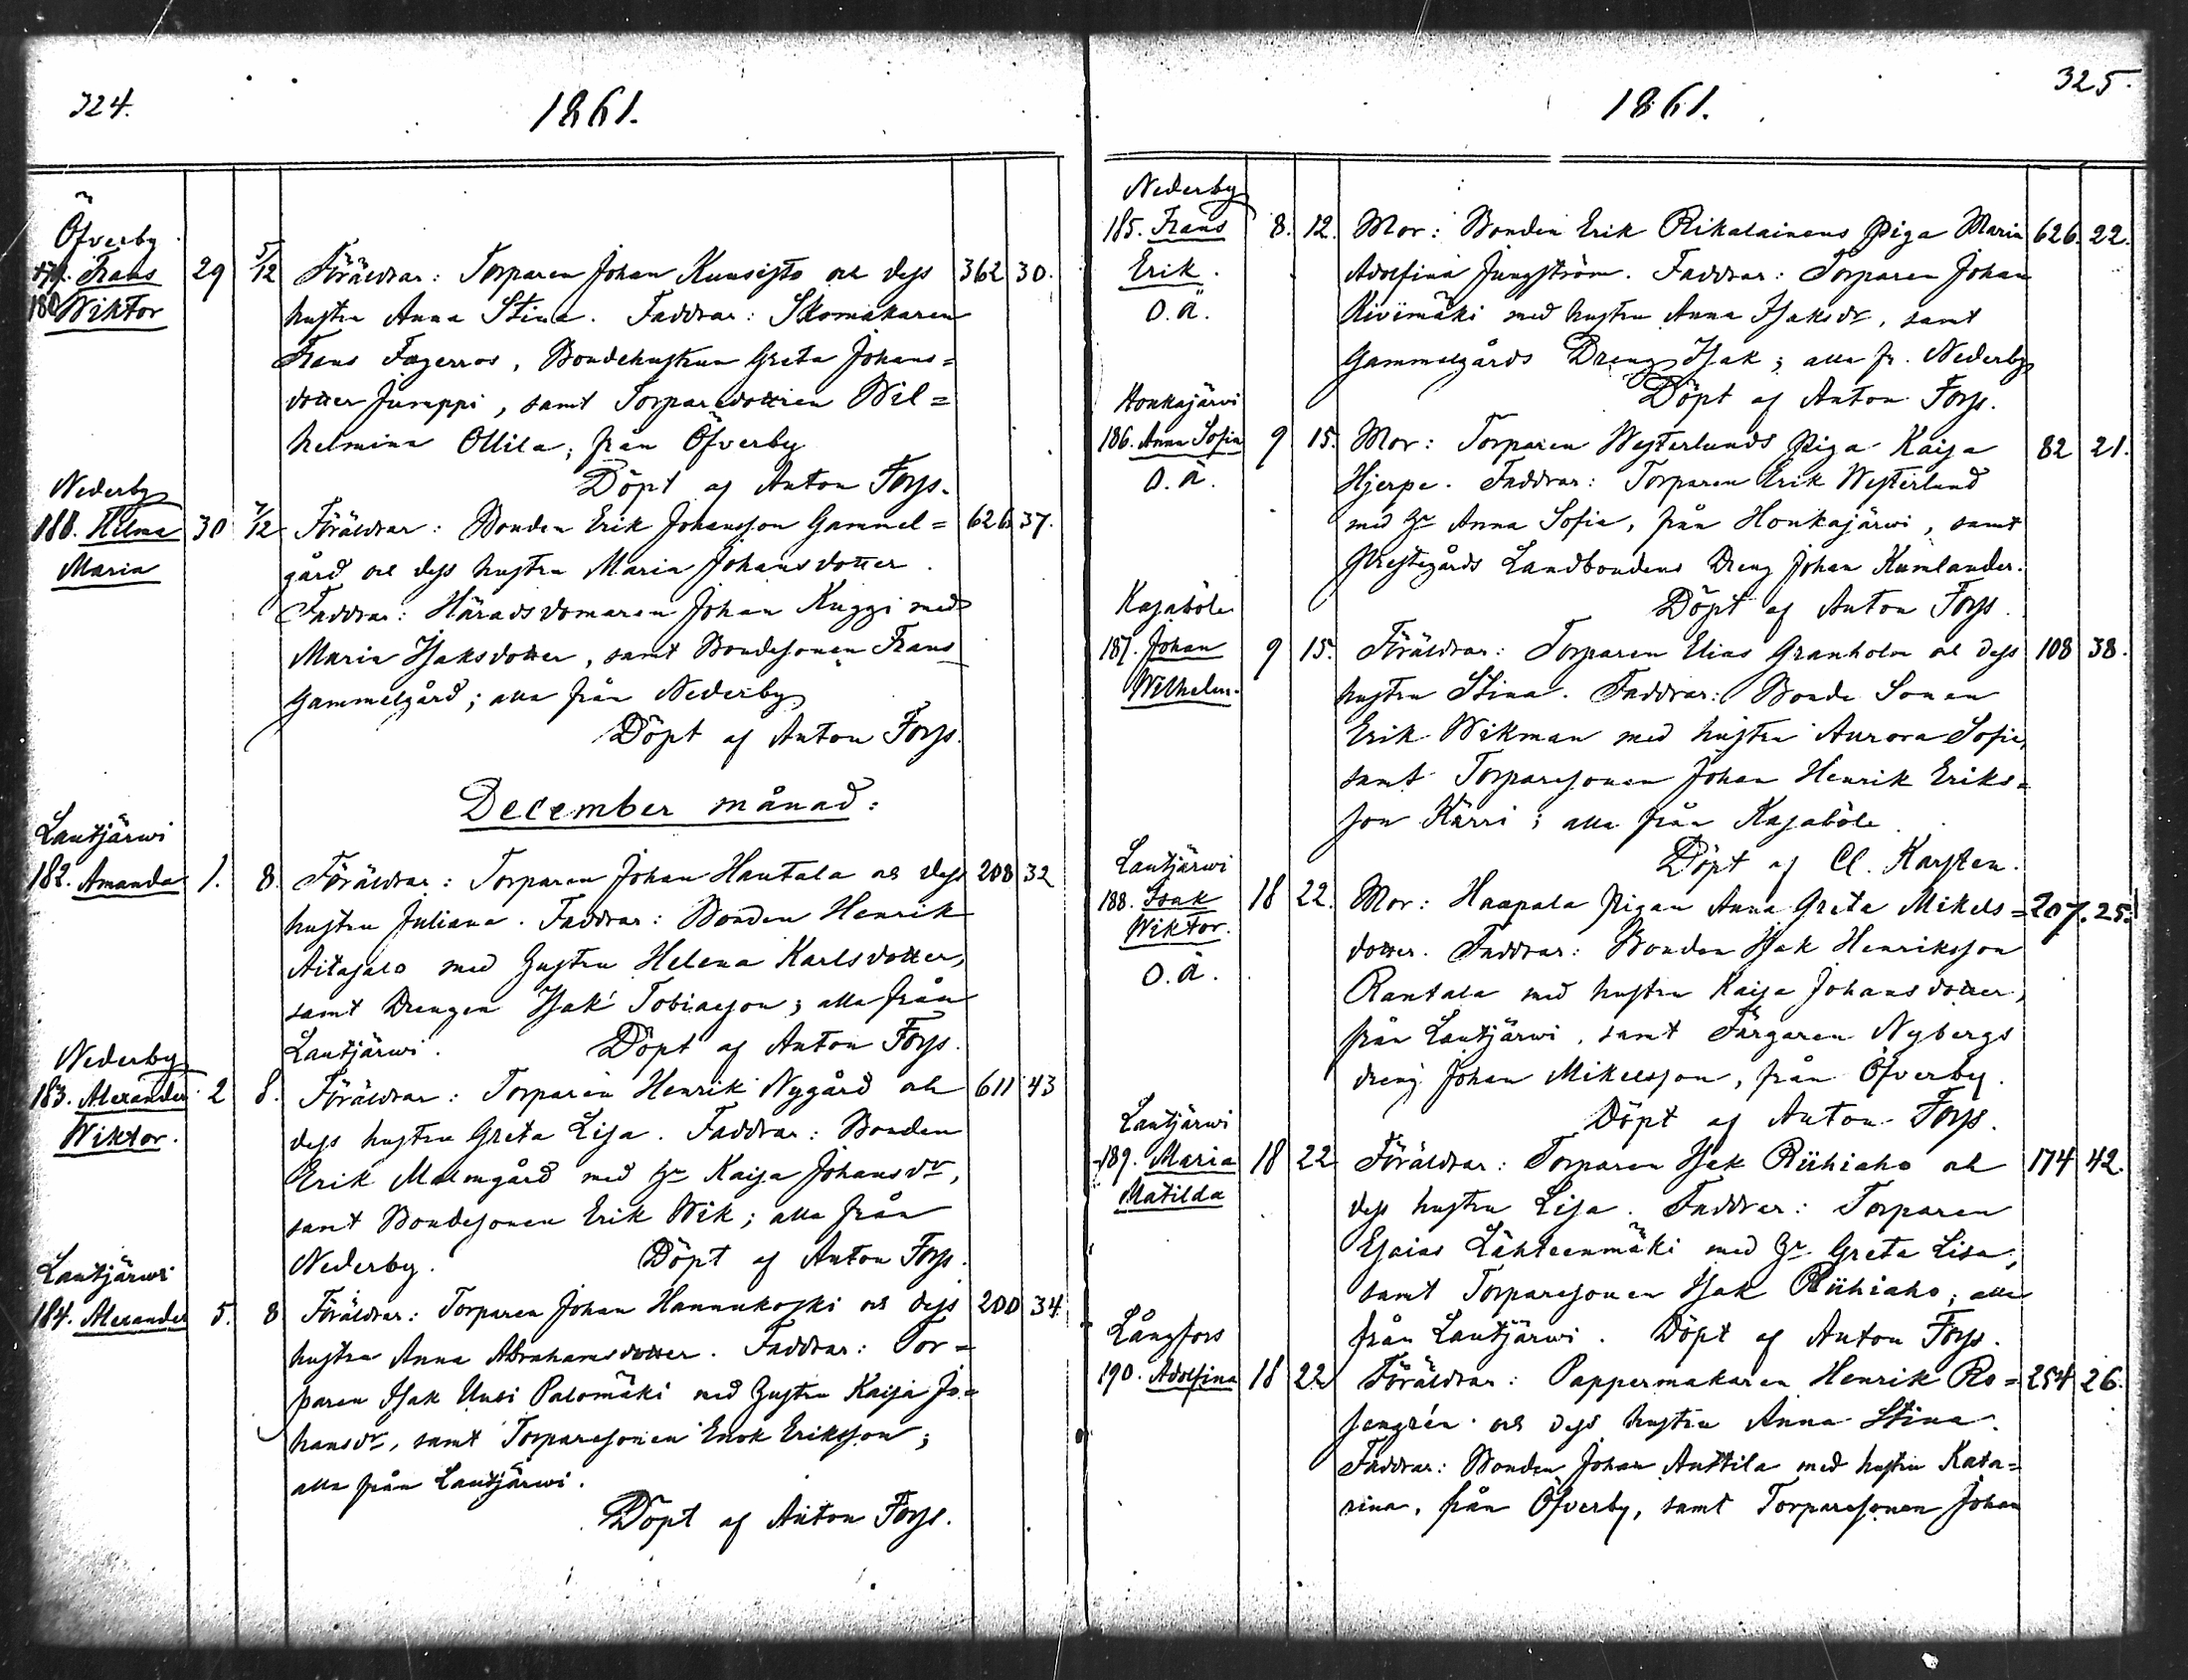 324.
1861.
Öfverby
179. Frans 29 5/12 Föräldrar: Torparen Johan Kuusisto och dess 362 30.
180 Wiktor hustru Anna Stina. Faddrar: Skomakaren
Frans Fagerros, Bondehustrun Greta Johans=
dotter Jumppi, samt Torparedottren Wil=
helmina Ollila, från Öfverby
Döpt af Anton Forss.
Nederby
181. Hilma 30 7/12 Föräldrar: Bonden Erik Johansson Gammel= 626 37.
Maria gård och dess hustru Maria Johansdotter.
Faddrar: Häradsdomaren Johan Kuggi med
Maria Isaksdotter, samt Bondesonen Frans
Gammelgård; alla från Nederby
Döpt af Anton Forss.
December månad:
Lautjärwi
182. Amanda 1. 8. Föräldrar: Torparen Johan Hautala och dess 208 32
hustru Juliana. Faddrar: Bonden Henrik
Aitasalo med Hustru Helena Karlsdotter,
samt Drengen Isak Tobiasson; alla från
Lautjärwi. Döpt af Anton Forss.
Nederby
183. Alexander 2 8. Föräldrar: Torparen Henrik Nygård och 611 43
Wiktor. dess hustru Greta Lisa. Faddrar: Bonden
Erik Malmgård med Hu Kaisa Johansdr,
samt Bondesonen Erik Wik; alla från
Nederby. Döpt af Anton Forss.
Lautjärwi
184. Alexander 5. 8 Föräldrar: Torparen Johan Hannukoski och dess 200 34
hustru Anna Abrahamsdotter. Faddrar: Tor=
paren Isak Uusi Palomäki med Hustru Kaisa Jo=
hansdr, samt Torparesonen Enok Eriksson;
alla från Lautjärwi.
Döpt af Anton Forss.
325.
1861.
Nederby
185. Frans 8. 12. Mor: Bonden Erik Rikalainens Piga Maria 626. 22.
Erik. Adolfina Jungström. Faddrar: Torparen Johan
O.ä. Kivimäki med hustru Anna Isaksdr, samt
Gammelgårds Dreng Isak; alla fr. Nederby
Döpt af Anton Forss.
Honkajärvi
186. Anna Sofia 9 15. Mor: Torparen Westerlunds Piga Kaisa 82 21.
O.ä. Hjerpe. Faddrar: Torparen Erik Westerlund
med Hu Anna Sofia, från Honkajärwi, samt
Prestgårds Landbondens Dreng Johan Kumlander.
Döpt af Anton Forss.
Kasaböle
187. Johan 9 15. Föräldrar: Torparen Elias Granholm och dess 108 38.
Wilhelm. hustru Stina. Faddrar: Bonde Sonen
Erik Wikman med hustru Aurora Sofia,
samt Torparesonen Johan Henrik Eriks=
son Kärri; alla från Kasaböle.
Döpt af Cl. Karsten.
Lautjärwi
188. Isak 18 22. Mor: Haapala Pigan Anna Greta Mikels= 207. 25.
Wiktor. dotter. Faddrar: Bonden Isak Henriksson
O.ä. Rantala med hustru Kaisa Johansdotter,
från Lautjärwi, samt Färgaren Nybergs
dreng Johan Mikelsson, från Öfverby.
Döpt af Anton Forss.
Lautjärwi
189. Maria 18 22 Föräldrar: Torparen Isak Riihiaho och 174 42.
Matilda dess hustru Lisa. Faddrar: Torparen
Esaias Lähteenmäki med Hu Greta Lisa,
samt Torparesonen Isak Riihiaho; alla
från Lautjärwi. Döpt af Anton Forss.
Långfors
190. Adolfina 18 22 Föräldrar: Pappermakaren Henrik Ro= 254 26.
sengrén och dess hustru Anna Stina.
Faddrar: Bonden Johan Anttila med hustru Kata=
rina, från Öfverby, samt Torparesonen Johan